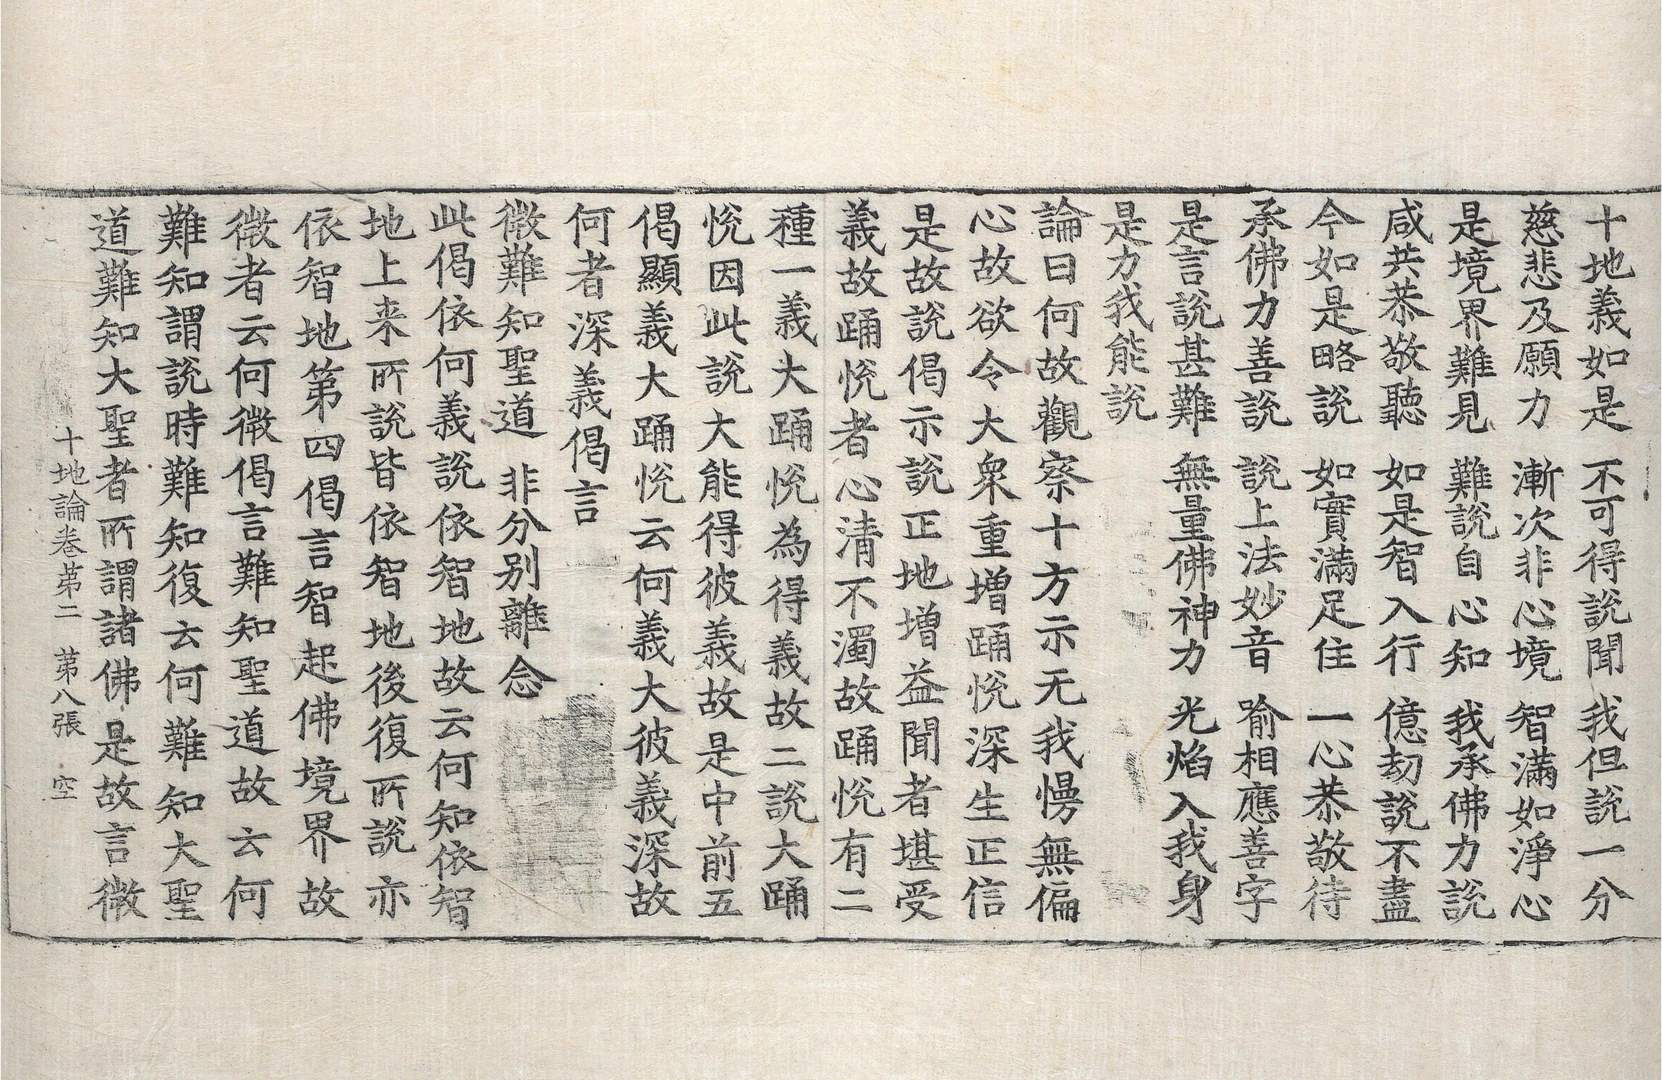 十地義如是　不可得說聞　我但說一分
慈悲及願力　漸次非心境　智滿如淨心
是境界難見　難說自心知　我承佛力說
咸共恭敬聽　如是智入行　億劫說不盡
今如是略說　如實滿足住　一心恭敬待
承佛力善說　說上法妙音　喻相應善字
是言說甚難　無量佛神力　光焰入我身
是力我能說
論曰何故觀察十方示无我慢無偏
心故欲令大衆重增踊悅深生正信
是故說偈示說正地增益聞者堪受
義故踊悅者心清不濁故踊悅有二
種一義大踊悅為得義故二說大踊
悅因此說大能得彼義故是中前五
偈顯義大踊悅云何義大彼義深故
何者深義偈言
微難知聖道　非分別離念
此偈依何義說依智地故云何知依智
地上来所說皆依智地後復所說亦
依智地第四偈言智起佛境界故
微者云何微偈言難知聖道故云何
難知謂說時難知復云何難知大聖
道難知大聖者所謂諸佛是故言微
十地論卷第二　第八張　空